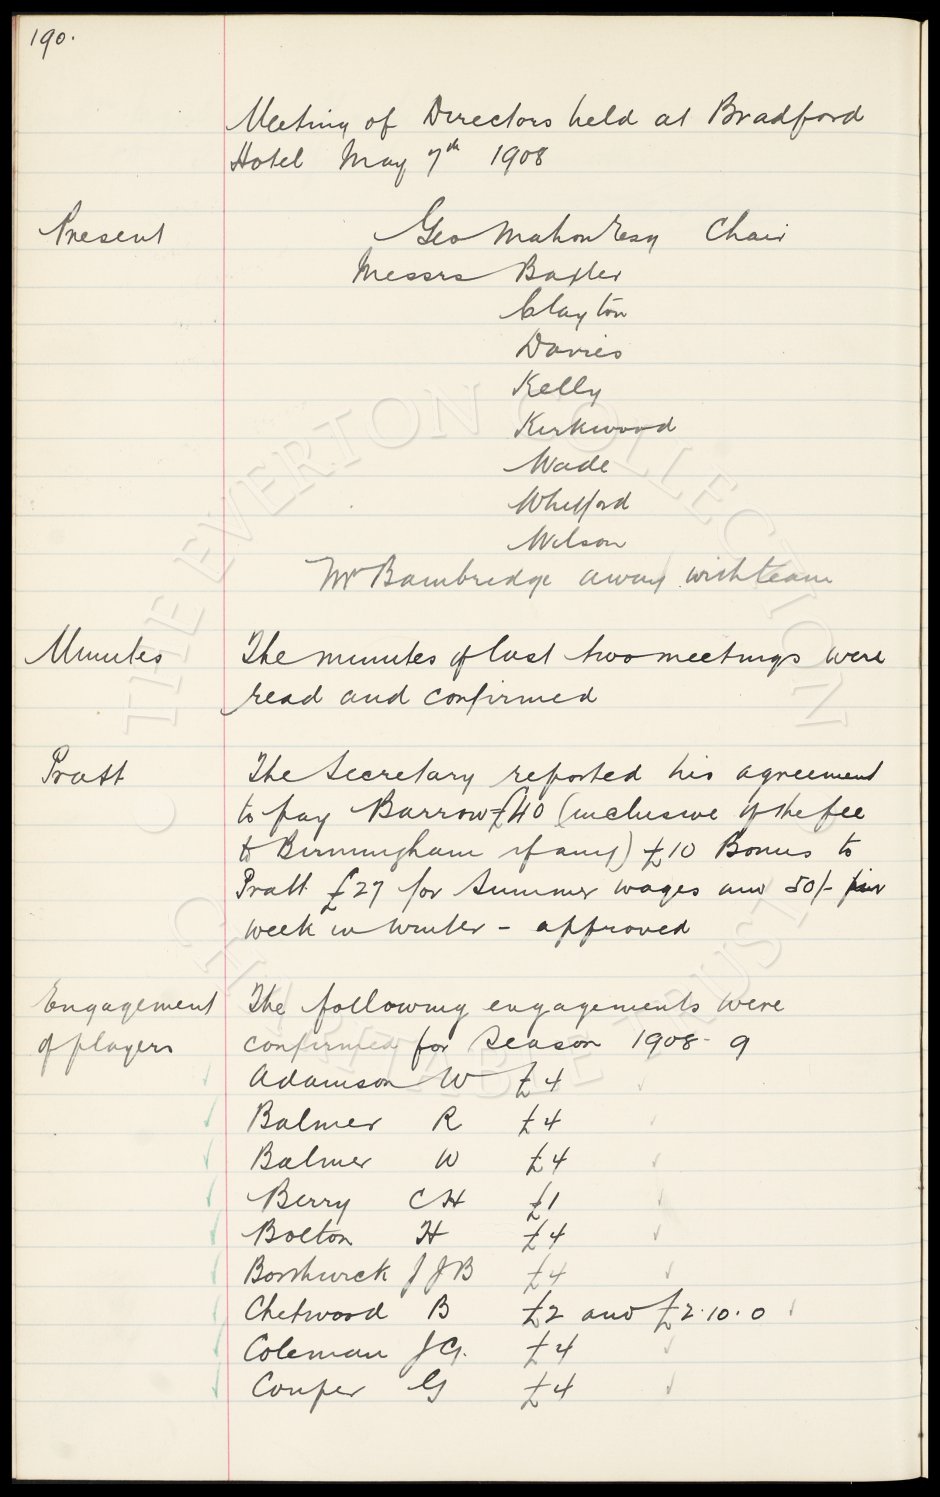 190.
Meeting of Directors held at Bradford
Hotel May 7th 1908
Present Geo Mahon Esq Chair
Messrs Baxter
Clayton
Davies
Kelly
Kirkwood
Wade
Whitford
Wilson
Mr Bainbridge away with team
Minutes The minutes of last two meetings were
read and confirmed
Pratt The Secretary reported his agreement
to pay Barrow £40 (inclusive of the fee
to Birmingham if any) £10 Bonus to
Pratt £27 for Summer wages and 50/- per
week in winter - approved
Engagement The following engagements were
of players confirmed for Season 1908-9
Adamson W £4
Balmer R £4
Balmer W £4
Berry C H £1
Bolton H £4
Borthwick J J B £4
Chetwood B £2 and £2.10.0
Coleman J G. £4
Couper G £4
© THE EVERTON COLLECTION CHARITABLE TRUST